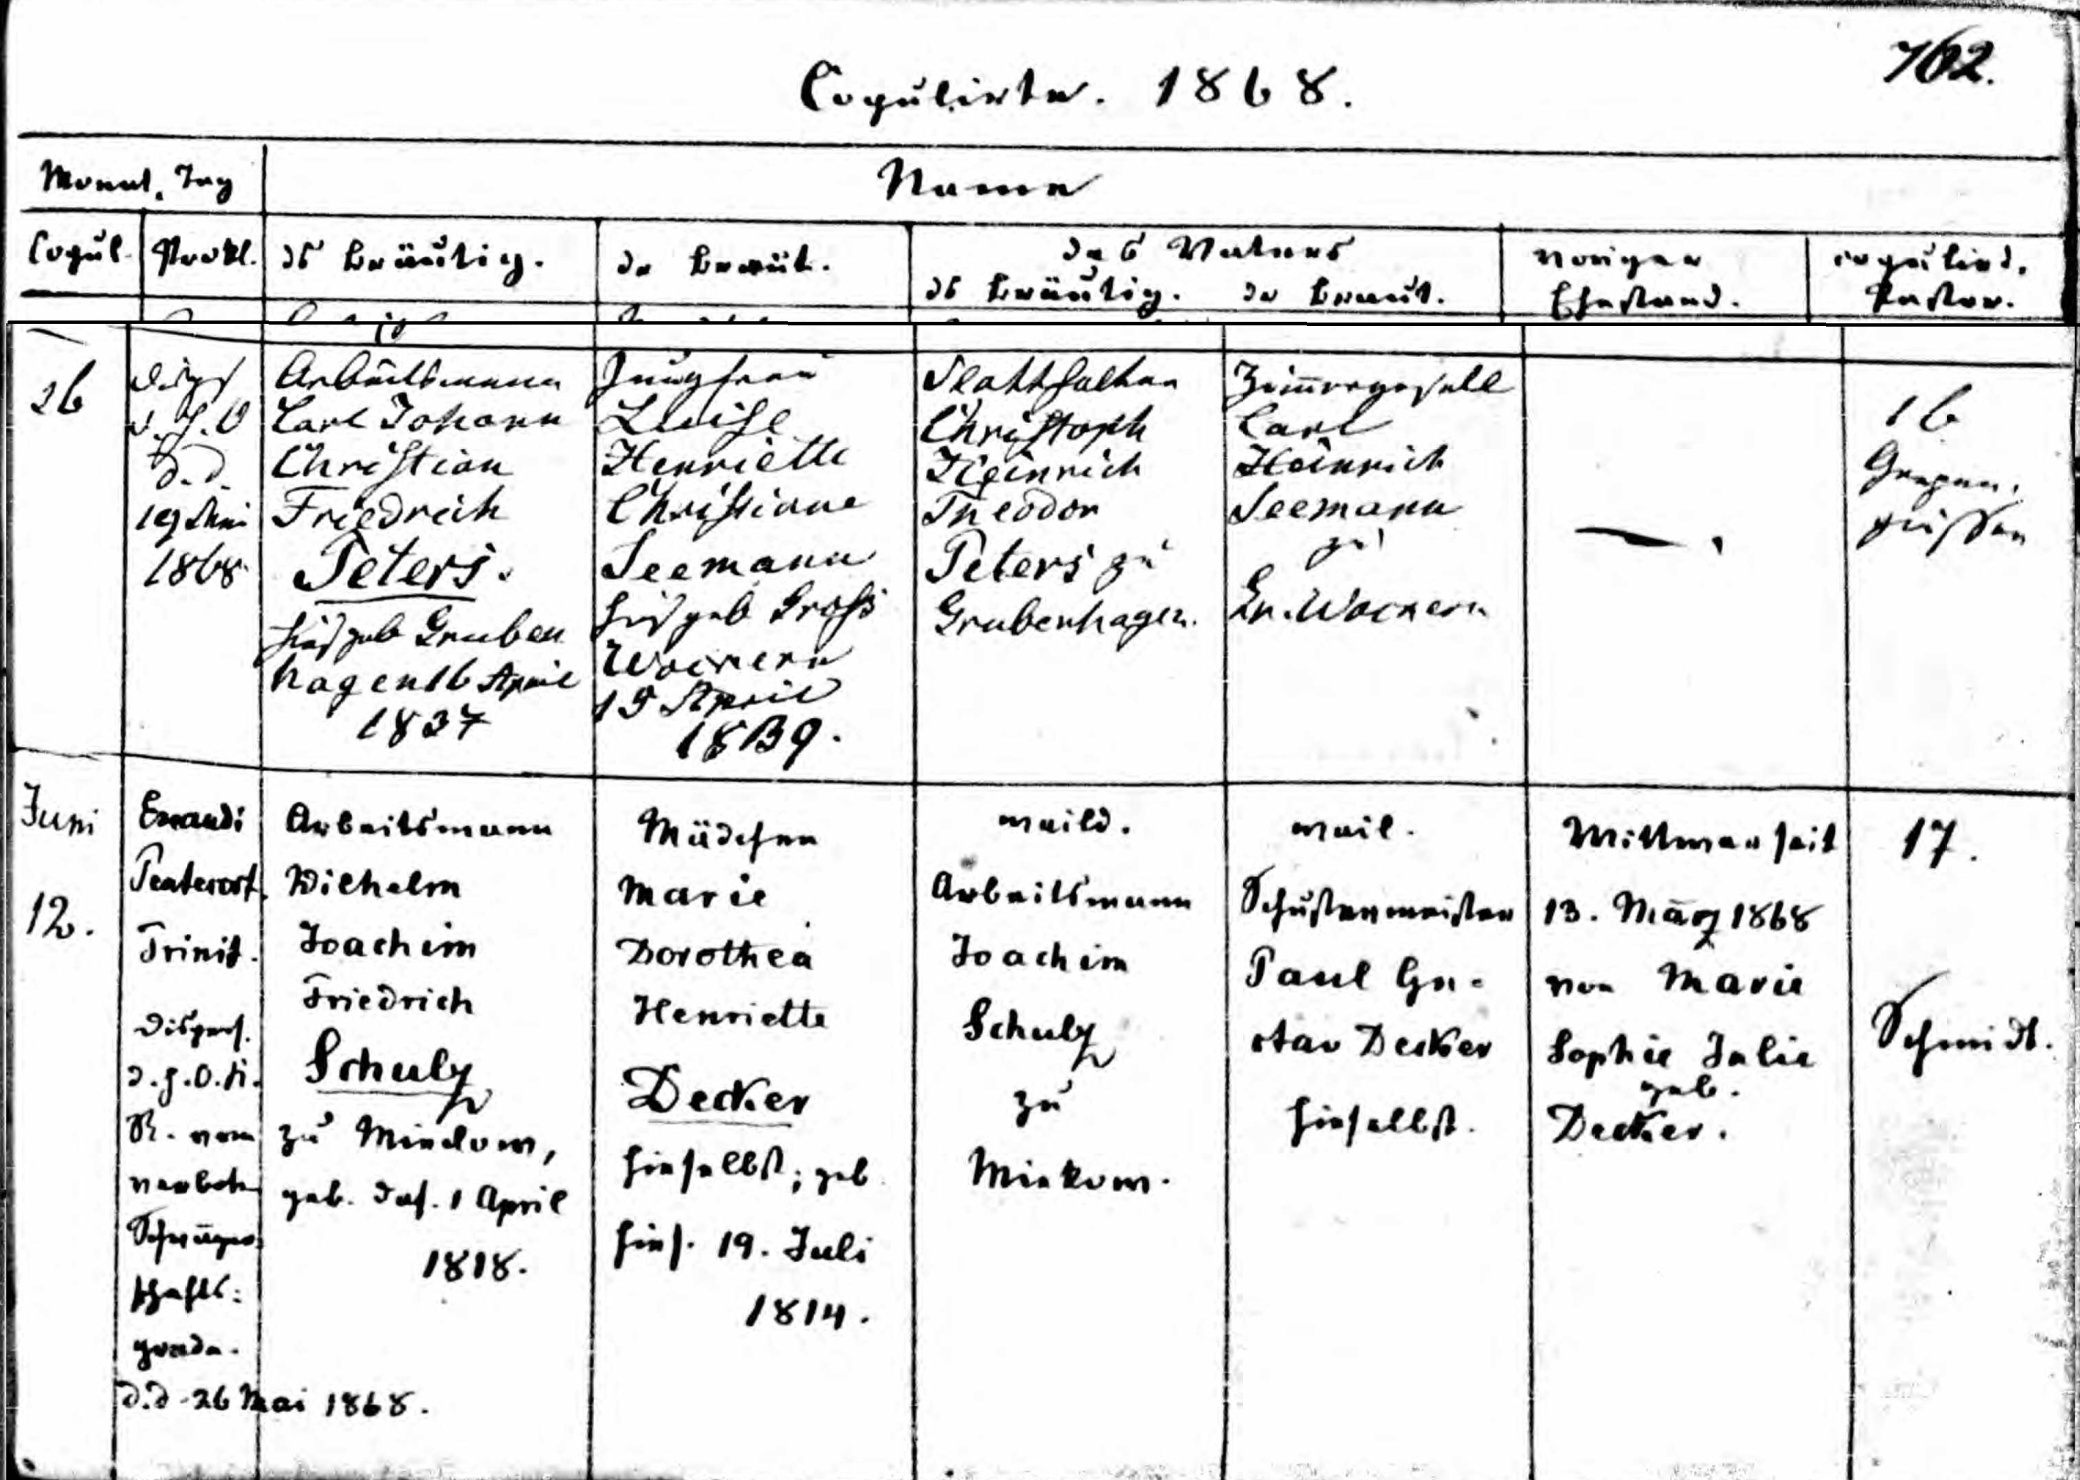 762.
Copulirte. 1868.
Monat, Tag
Name
Copul. Prokl. ds Bräutig. dr Braut. des Vaters voriger copulird.
ds Bräutig. dr Braut. Ehestand. Pastor.
26
Disps
d. h. O
d. d.
19 Juni
1868
Arbeitsmann
Carl Johann
Christian
Friedrich
Peters.
hies geb Gruben
hagen 16 April
1837
Jungfrau
Luise
Henriette
Christiane
Seemann
hies geb Gross
Wockern
15 April
1839.
Statthalter
Christoph
Heinrich
Theodor
Peters zu
Grubenhagen.
Zimmergesell
Carl
Heinrich
Seemann
zu
Gr. Wockern
16
Grapen.
giesser
Juni
12.
Exaudi
Pentecost.
Trinit.
Dispens.
d. h. O. K.
R. vom
verbot.
Schwäger
schafts:
grade.
d. d. 26 Mai 1868.
Arbeitsmann
Wilhelm
Joachim
Friedrich
Schulz
zu
geb. das. 1 April
1818.
Mädchen
Marie
Dorothea
Henriette
Decker
hieselbst; geb
hies. 19. Juli
1814.
weild.
Arbeitsmann
Joachim
Schulz
zu
weil.
Schustermeister
Paul Gu-
stav Decker
hieselbst.
Wittwer seit
13. März 1868
von Marie
Sophie Julie
geb.
Decker.
17.
Schmidt.